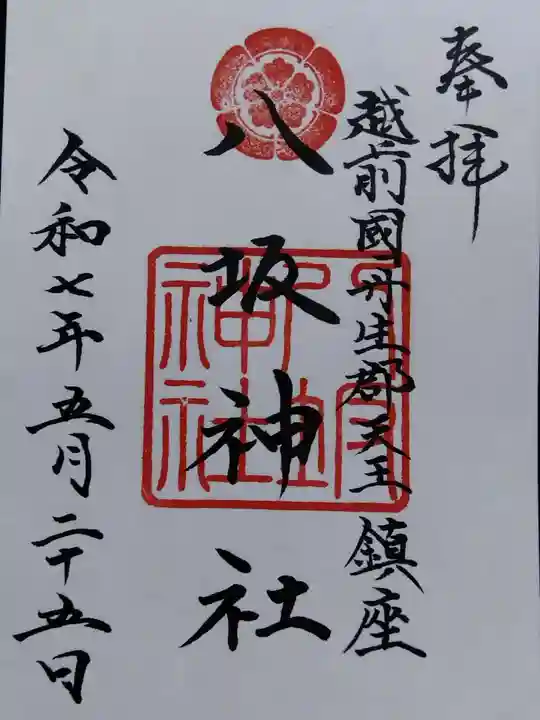 奉拝
越前國丹生郡天王 鎮座
八坂神社
令和七年五月二十五日